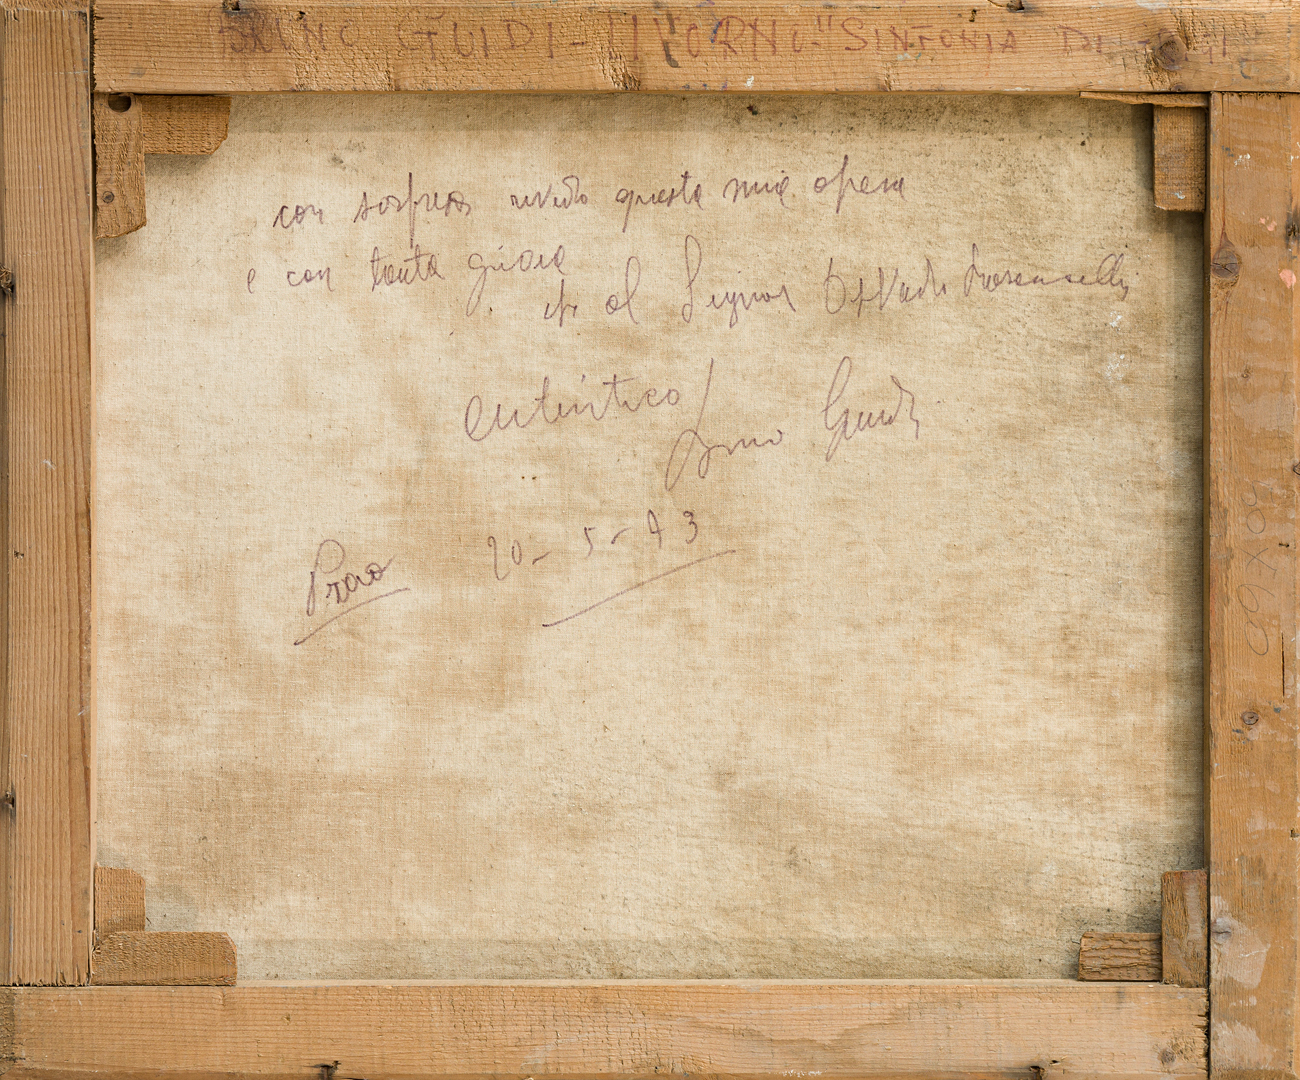 BRUNO GUIDI - LIVORNO - "SINFONIA DI
con sorpresa rivedo questa mia opera
e con tanta gioia
al Signor
autentico
Bruno Guidi
Prato 20-5-73
50X60